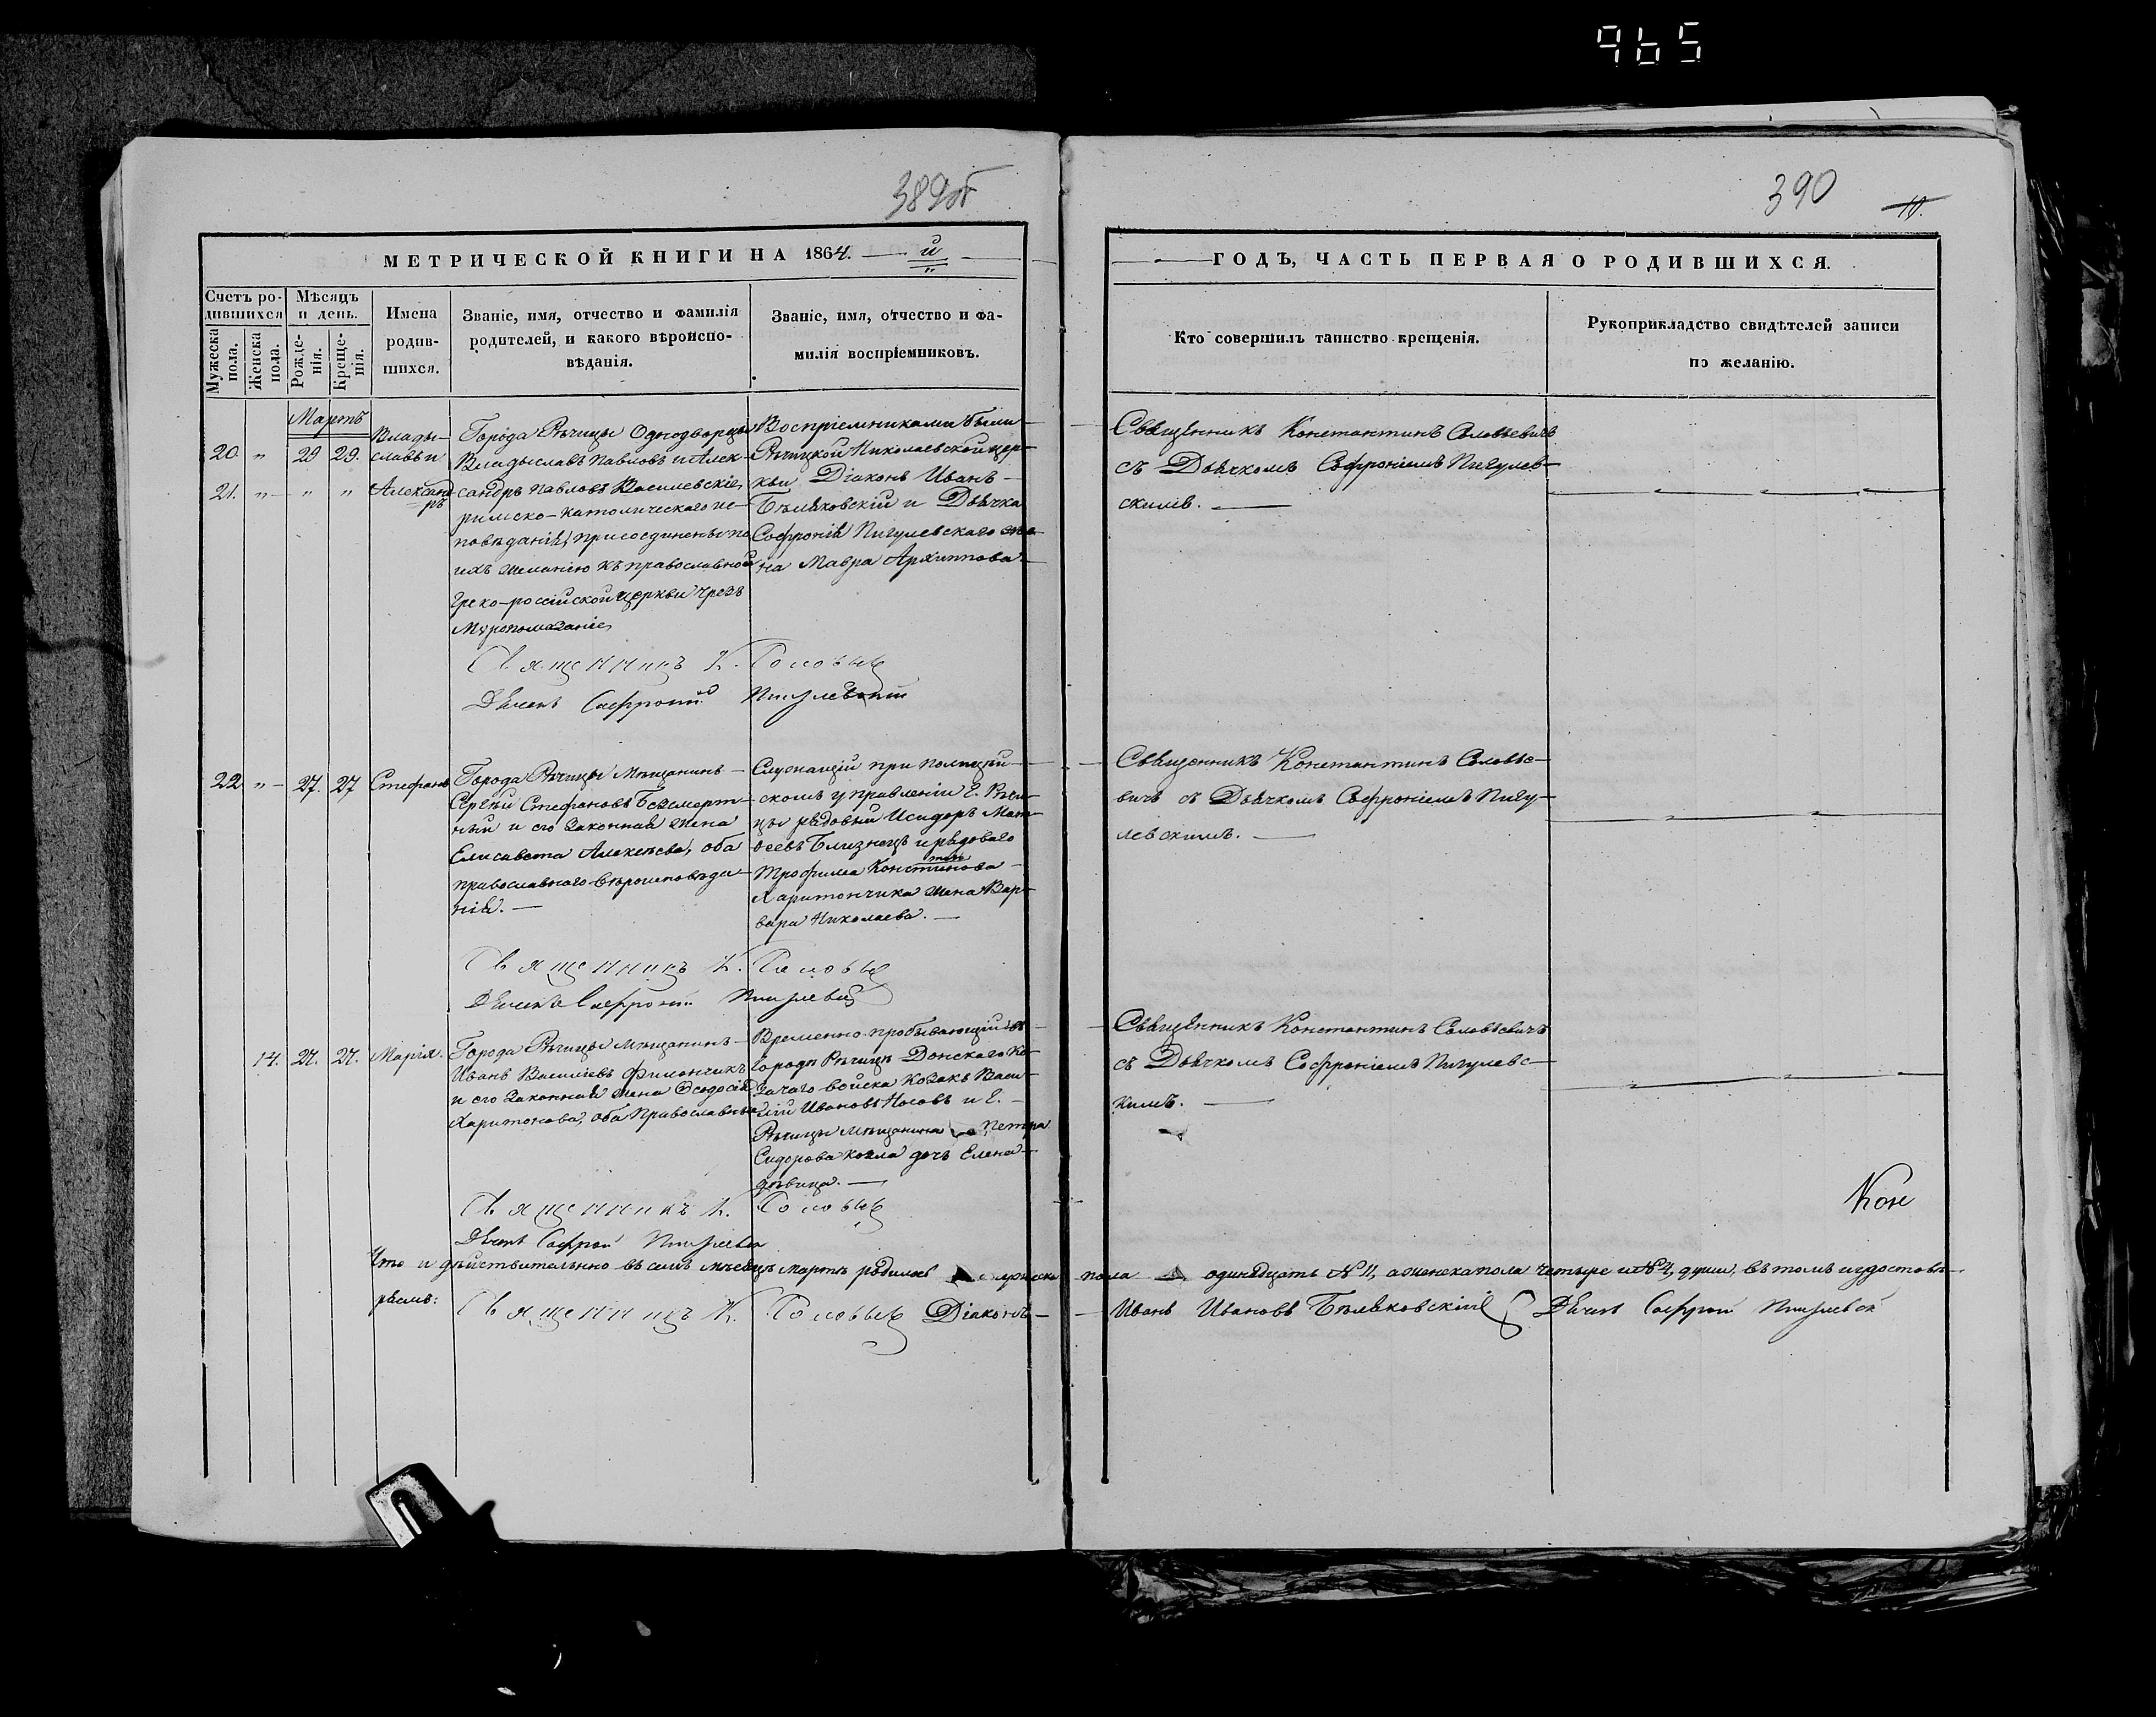 965
389об
390
11.
МЕТРИЧЕСКОЙ КНИГИ НА 1864. й
ГОДЪ, ЧАСТЬ ПЕРВАЯ О РОДИВШИХСЯ.
Счетъ родившихся
Мужеска пола.
Женска пола.
Мѣсяцъ и день.
Рожденія.
Крещенія.
Имена родившихся.
Званіе, имя, отчество и фамилія
родителей, и какого вѣроиспо-
вѣданія.
Званіе, имя, отчество и фа-
милія воспріемниковъ.
Кто совершилъ таинство крещенія.
Рукоприкладство свидѣтелей записи
по желанію.
Мартъ
20. " 29 29.
21. " " "
Влады-
славъ и
Александ
ръ
Города Рѣчицы Однодворцы
Владыславъ Павловъ и Алек-
сандръ Павловъ Василевскіе,
римско-католическаго ис-
повѣданія, присоединены по
ихъ желанію къ православной
греко-россійской церкви чрезъ
Мѵропомазаніе
Воспріемниками были
Рѣчицкой Николаевской цер-
кви Діаконъ Иванъ
Бѣляковскій и Дьячка
Софронія Пигулевскаго же-
на Мавра Архиппова
Священникъ Константинъ Соловьевичъ
съ Дьячкомъ Софроніемъ Пигулев-
скимъ.
Священникъ К. Соловье
Дьячекъ Софроній Пигулевскій
22 " 27. 27 Стефанъ
Города Рѣчицы Мѣщанинъ
Сергѣй Стефановъ Безсмерт-
ный и его законная жена
Елисавета Алексѣева, оба
православнаго вѣроисповѣда-
нія.
Служащій при полицей-
скомъ управленіи г. Рѣчи-
цы рядовый Исидоръ Мат-
ѳеевъ Близнецъ и рядоваго
Трофима Константинова
Харитончика жена Вар-
вара Николаева.
Священникъ Константинъ Соловье-
вичъ съ Дьячкомъ Софроніемъ Пигу-
левскимъ.
Священникъ К. Соловье
Дьячекъ Софроній Пигулевск
14. 27. 27. Марія.
Города Рѣчицы мѣщанинъ
Иванъ Василіевъ Филончикъ
и его законная жена Ѳеодосія
Харитонова, оба Православны
Временно-пробывающій въ
городѣ Рѣчицѣ Донскаго Ка-
зачаго войска Козакъ Васи-
лій Ивановъ Носовъ и г.
Рѣчицы мѣщанина Петра
Сидорова Козла дочь Елена
дѣвица.
Священникъ Константинъ Соловьевичъ
съ Дьячкомъ Софроніемъ Пигулевс-
кимъ.
Священникъ К. Соловье
Дьячекъ Софроній Пигулевск
Что и дѣйствительно въ семъ мѣсяцѣ Мартѣ родилось мужеска пола одинадцать №11, а женска пола четыре и №4, души, въ томъ и удостовѣ-
ряемъ: Священникъ К. Соловье Діаконъ Иванъ Ивановъ Бѣляковскій Дьячекъ Софроній Пигулевскій